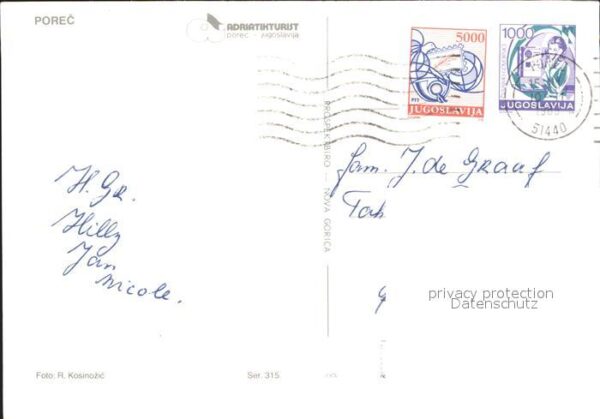 POREČ
ADRIATIKTURIST
poreč - jugoslavija
5000
PTT
JUGOSLAVIJA
1000
JUGOSLAVIJA
51440
PROJEKTBIRO — NOVA GORICA
H. Gr.
Hilly
Jan
Nicole.
Fam. J. de Graaf
privacy protection
Datenschutz
Foto: R. Kosinožić
Ser. 315